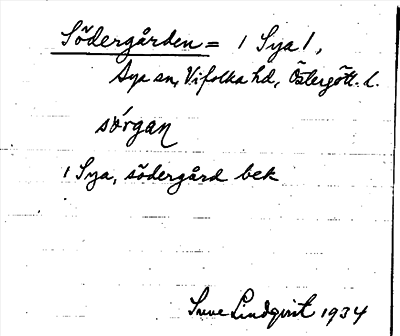 Södergården = 1 Sya 1,
Sya sn, Vifolka hd, Östergötl. l.
sörgan
1 Sya, södergård bek
Sune Lindqvist 1934